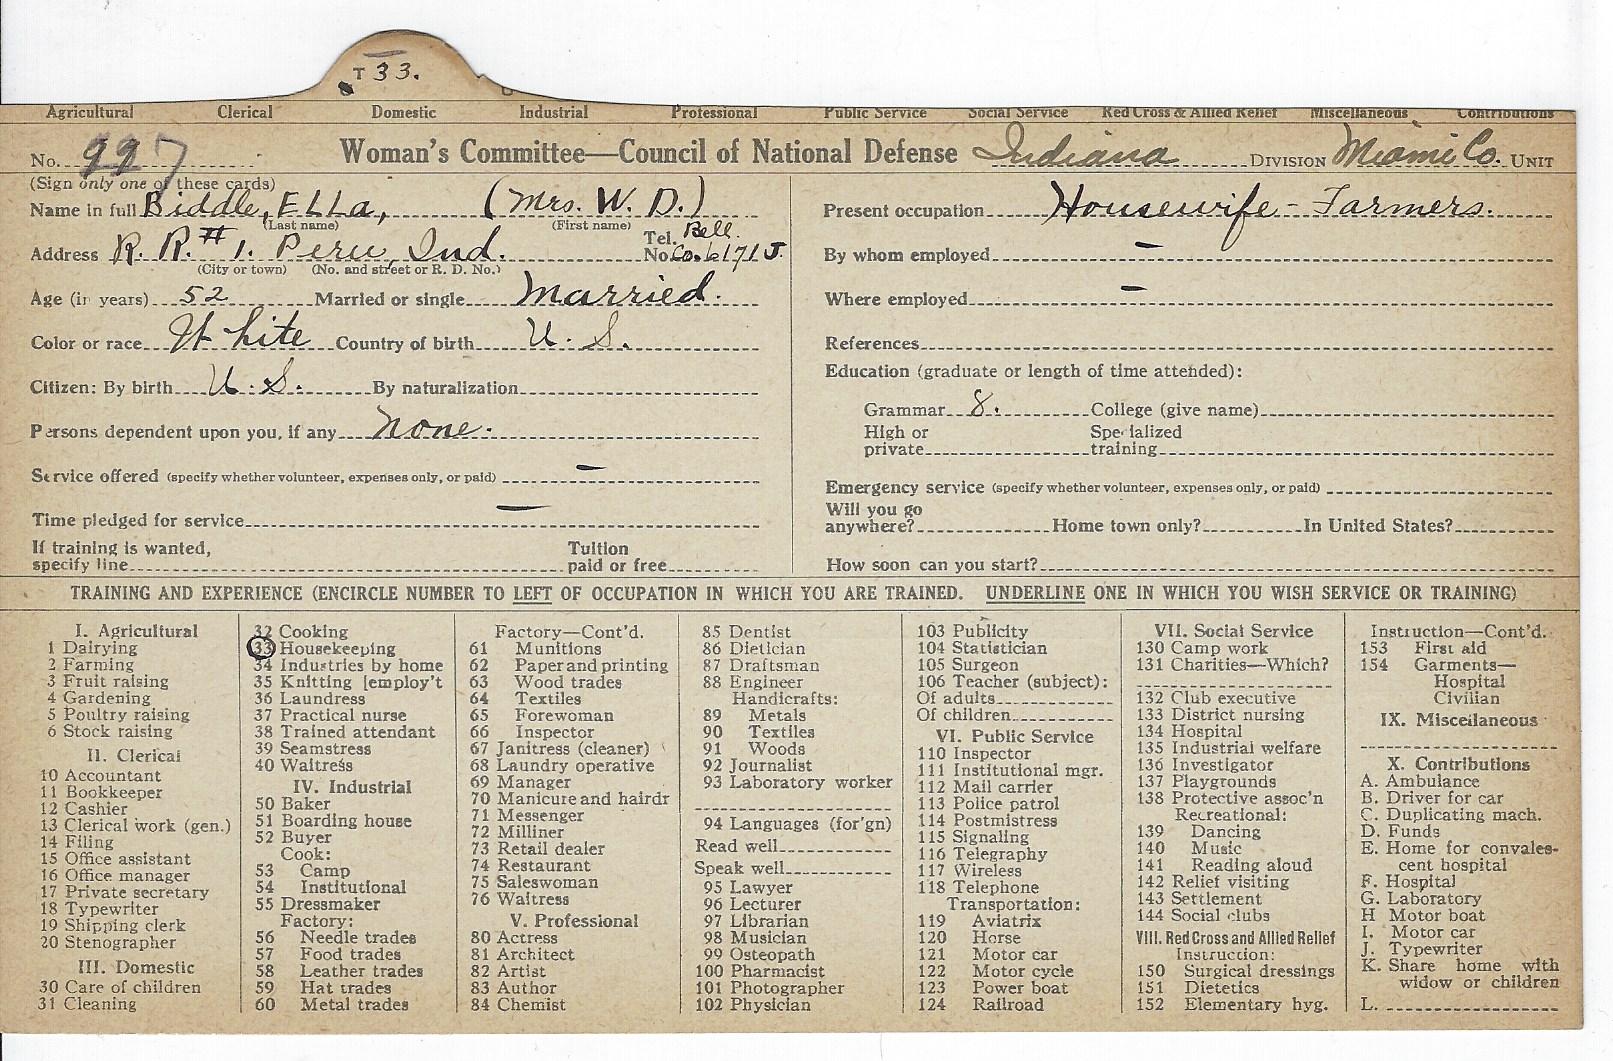 T 33.
Agricultural Clerical Domestic Industrial Professional Public Service Social Service Red Cross & Allied Relief Miscellaneous Contributions
No. 997 Woman's Committee—Council of National Defense Indiana DIVISION Miami Co. UNIT
(Sign only one of these cards)
Name in full Biddle, ELLa, (Mrs. W. D.)
(Last name) (First name)
Address R. R. #1. Peru, Ind. Tel. No. Bell. Co. 6171 J.
(City or town) (No. and street or R. D. No.)
Age (in years) 52 Married or single Married.
Color or race White Country of birth U. S.
Citizen: By birth U. S. By naturalization
Persons dependent upon you, if any None.
Service offered (specify whether volunteer, expenses only, or paid) —
Time pledged for service —
If training is wanted, specify line Tuition paid or free
Present occupation Housewife - Farmers.
By whom employed —
Where employed —
References
Education (graduate or length of time attended):
Grammar 8. College (give name)
High or private Specialized training
Emergency service (specify whether volunteer, expenses only, or paid)
Will you go anywhere? Home town only? In United States?
How soon can you start?
TRAINING AND EXPERIENCE (ENCIRCLE NUMBER TO LEFT OF OCCUPATION IN WHICH YOU ARE TRAINED. UNDERLINE ONE IN WHICH YOU WISH SERVICE OR TRAINING)
I. Agricultural
1 Dairying
2 Farming
3 Fruit raising
4 Gardening
5 Poultry raising
6 Stock raising
II. Clerical
10 Accountant
11 Bookkeeper
12 Cashier
13 Clerical work (gen.)
14 Filing
15 Office assistant
16 Office manager
17 Private secretary
18 Typewriter
19 Shipping clerk
20 Stenographer
III. Domestic
30 Care of children
31 Cleaning
32 Cooking
33 Housekeeping
34 Industries by home
35 Knitting [employ't
36 Laundress
37 Practical nurse
38 Trained attendant
39 Seamstress
40 Waitress
IV. Industrial
50 Baker
51 Boarding house
52 Buyer
Cook:
53 Camp
54 Institutional
55 Dressmaker
Factory:
56 Needle trades
57 Food trades
58 Leather trades
59 Hat trades
60 Metal trades
Factory—Cont'd.
61 Munitions
62 Paper and printing
63 Wood trades
64 Textiles
65 Forewoman
66 Inspector
67 Janitress (cleaner)
68 Laundry operative
69 Manager
70 Manicure and hairdr
71 Messenger
72 Milliner
73 Retail dealer
74 Restaurant
75 Saleswoman
76 Waitress
V. Professional
80 Actress
81 Architect
82 Artist
83 Author
84 Chemist
85 Dentist
86 Dietician
87 Draftsman
88 Engineer
Handicrafts:
89 Metals
90 Textiles
91 Woods
92 Journalist
93 Laboratory worker
94 Languages (for'gn)
Read well
Speak well
95 Lawyer
96 Lecturer
97 Librarian
98 Musician
99 Osteopath
100 Pharmacist
101 Photographer
102 Physician
103 Publicity
104 Statistician
105 Surgeon
106 Teacher (subject):
Of adults
Of children
VI. Public Service
110 Inspector
111 Institutional mgr.
112 Mail carrier
113 Police patrol
114 Postmistress
115 Signaling
116 Telegraphy
117 Wireless
118 Telephone
Transportation:
119 Aviatrix
120 Horse
121 Motor car
122 Motor cycle
123 Power boat
124 Railroad
VII. Social Service
130 Camp work
131 Charities—Which?
132 Club executive
133 District nursing
134 Hospital
135 Industrial welfare
136 Investigator
137 Playgrounds
138 Protective assoc'n
Recreational:
139 Dancing
140 Music
141 Reading aloud
142 Relief visiting
143 Settlement
144 Social clubs
VIII. Red Cross and Allied Relief
Instruction:
150 Surgical dressings
151 Dietetics
152 Elementary hyg.
Instruction—Cont'd.
153 First aid
154 Garments—
Hospital
Civilian
IX. Miscellaneous
X. Contributions
A. Ambulance
B. Driver for car
C. Duplicating mach.
D. Funds
E. Home for convales-
cent hospital
F. Hospital
G. Laboratory
H Motor boat
I. Motor car
J. Typewriter
K. Share home with
widow or children
L.